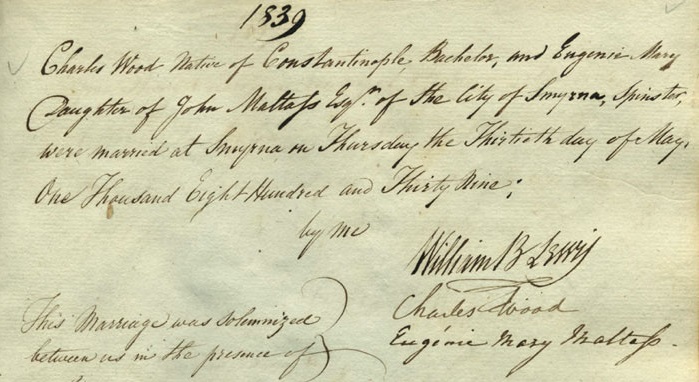 1839
Charles Wood Native of Constantinople, Bachelor, and Eugenie Mary
Daughter of John Maltass Esqr. of the City of Smyrna, Spinster,
were married at Smyrna on Thursday the Thirtieth day of May,
One Thousand Eight Hundred and Thirty Nine;
by me
William B Lewis
Charles Wood
Eugénie Mary Maltass.
This Marriage was solemnized
between us in the presence of